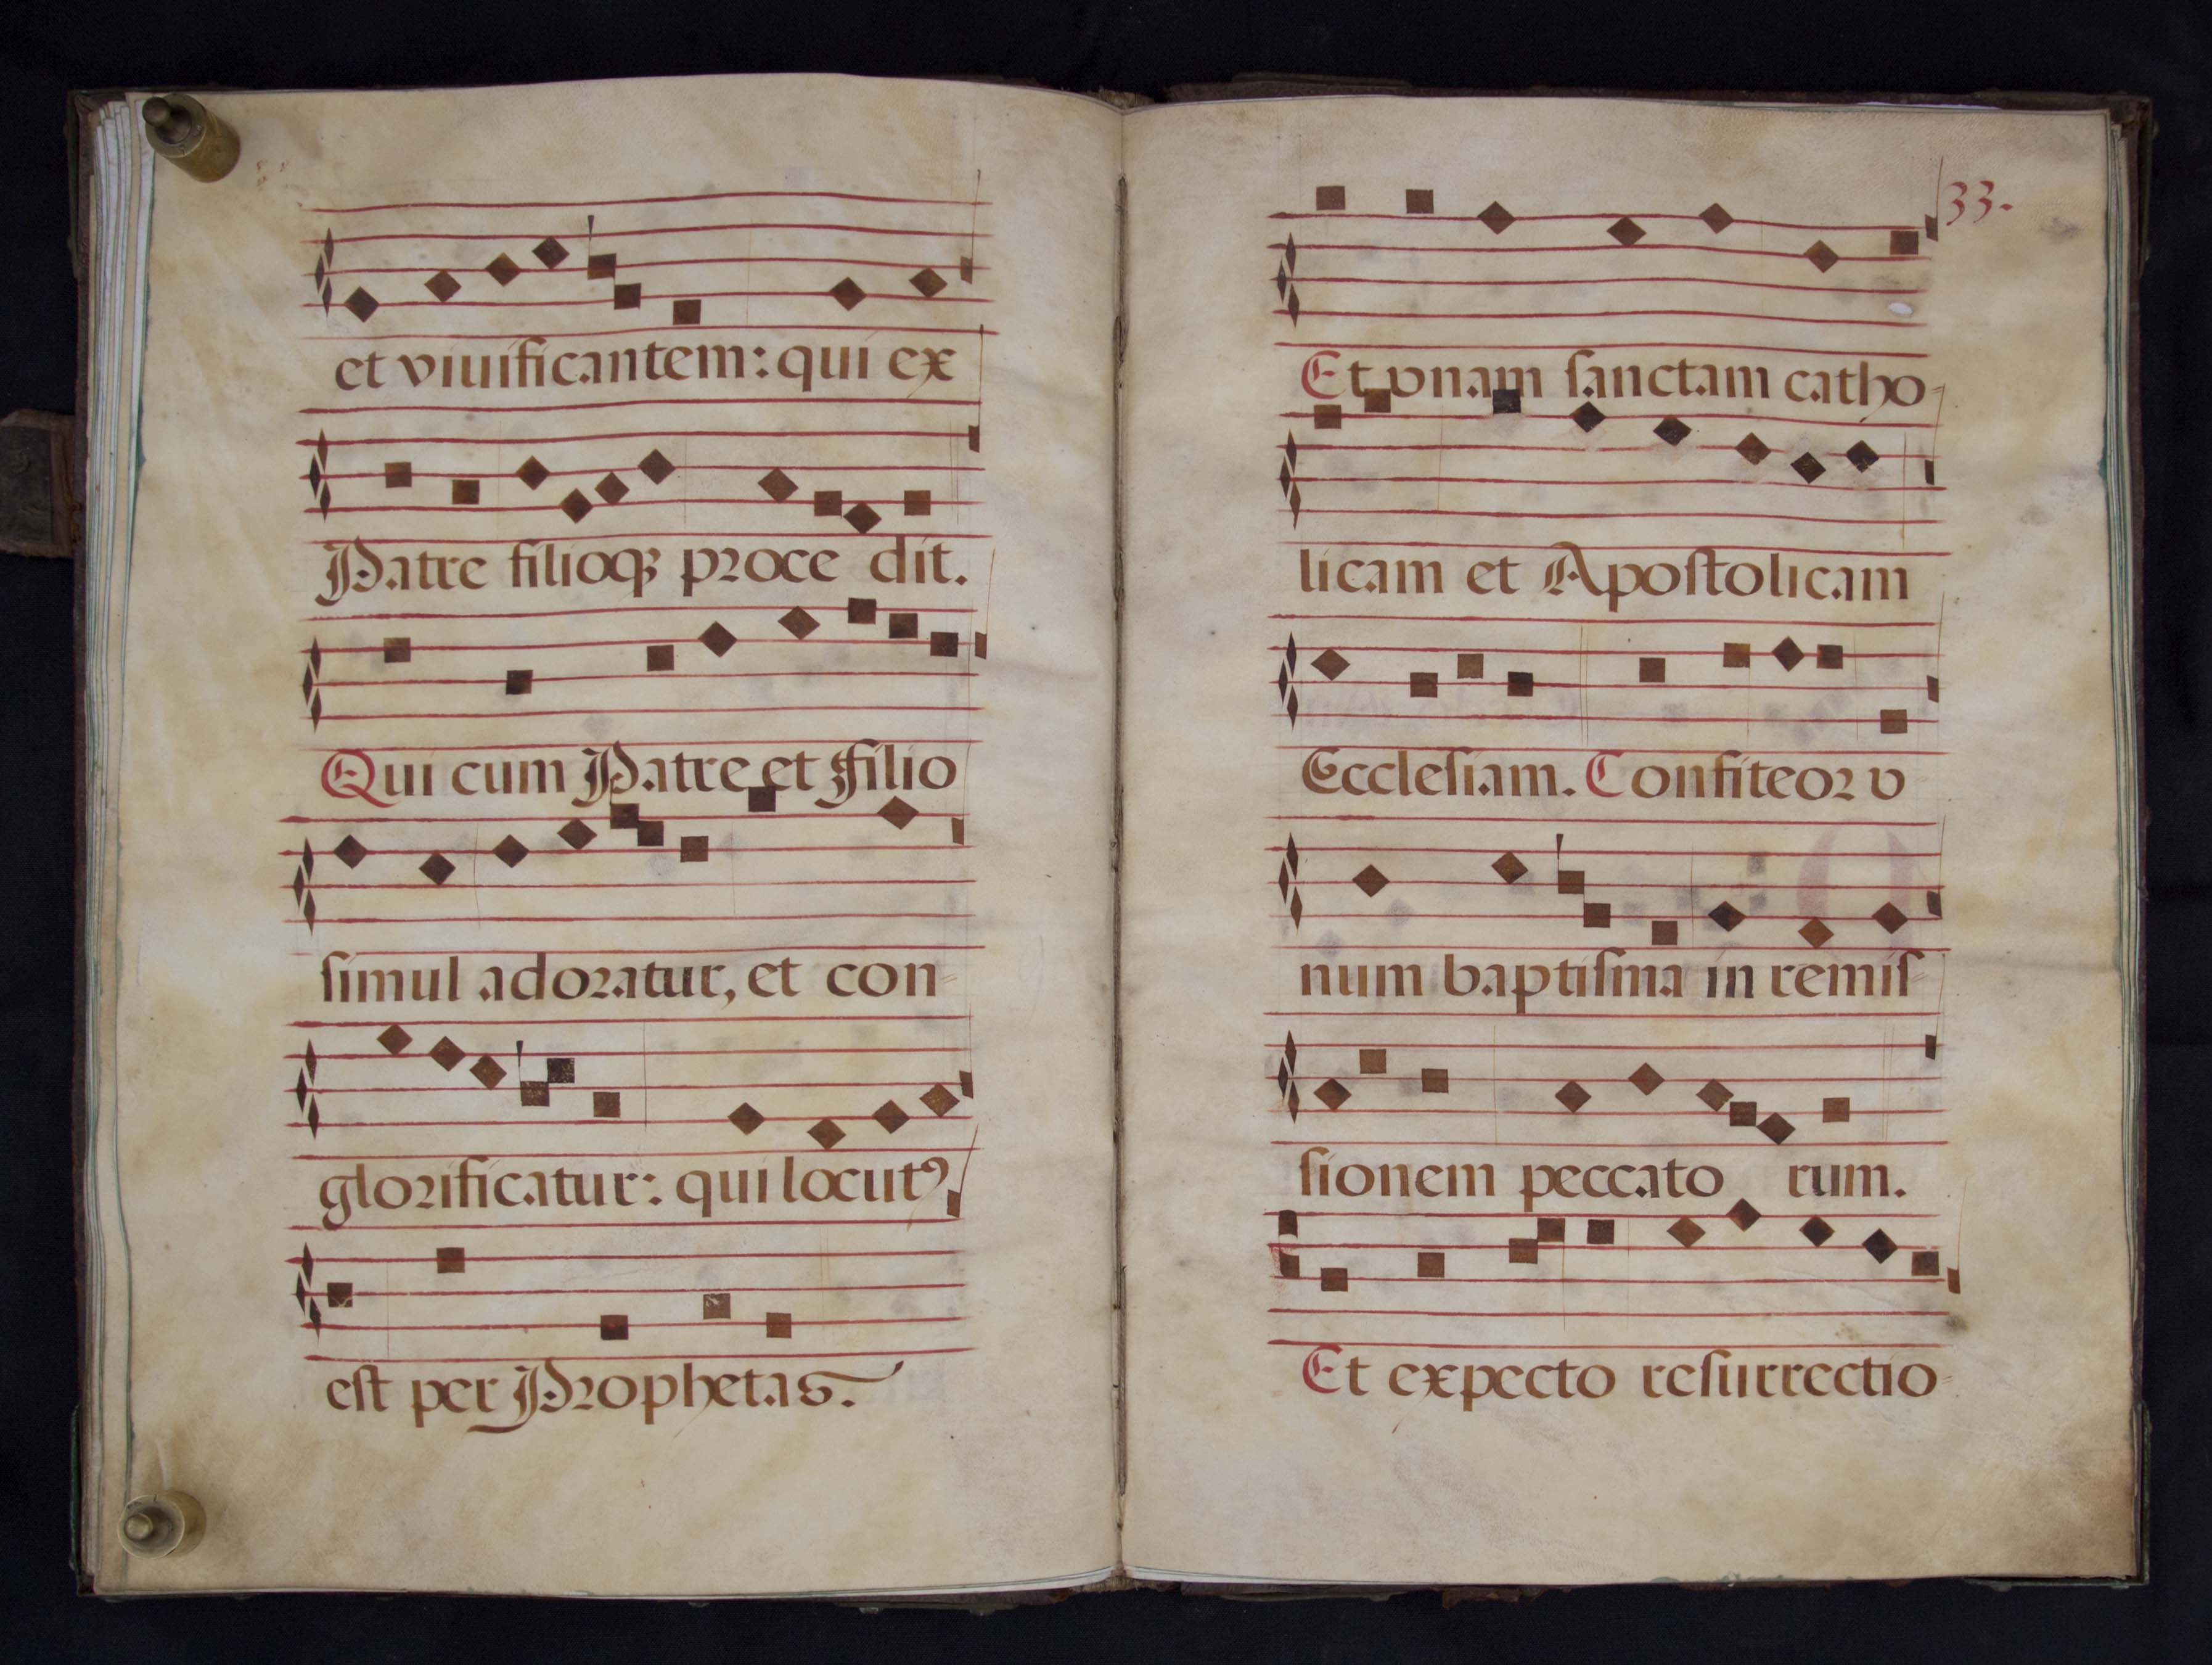 et viuificantem: qui ex
Patre filioqȝ proce dit.
Qui cum Patre et Filio
ſimul adoꝛatur, et con-
gloꝛificatur: qui locutꝰ
eſt per Pꝛophetas.
33.
Et vnam ſanctam catho-
licam et Apoſtolicam
Eccleſiam. Confiteoꝛ v
num baptiſma in remiſ-
ſionem peccato rum.
Et expecto reſurrectio-